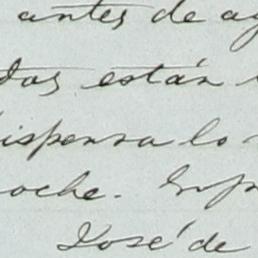 antes de ag
das están
ispensa lo
oche.
José de